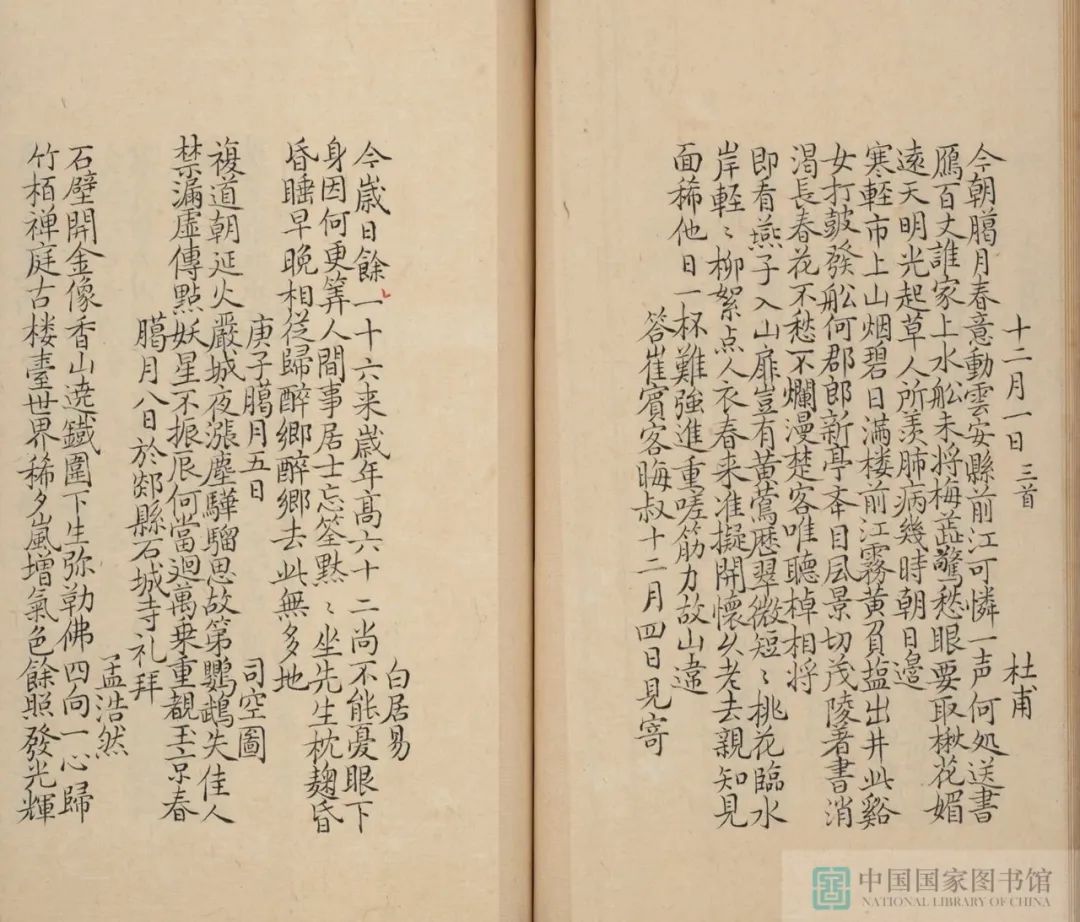 十二月一日 三首 杜甫
今朝臈月春意動雲安縣前江可憐一声何処送書
鴈百丈誰家上水舩未将梅蘂驚愁眼要取楸花媚
遠天明光起草人所羡肺病幾時朝日邊
寒軽市上山烟碧日满楼前江霧黄負塩出井此谿
女打皷發舩何郡郎新亭夲目風景切茂陵著書消
渇長春花不愁不爛漫楚客唯聽棹相将
即看燕子入山扉豈有黄鶯歴翠微短〻桃花臨水
岸軽〻柳絮点人衣春来准擬開懐久老去親知見
面稀他日一杯難強進重嗟筋力故山違
答崔賓客晦叔十二月四日見寄
白居易
今歳日餘一十六来歳年髙六十二尚不能憂眼下
身因何更筭人間事居士忘筌黙〻坐先生枕麹昏
昏睡早晩相従歸醉鄉醉鄉去此無多地
庚子臈月五日 司空圖
複道朝延火嚴城夜漲塵驊騮思故第鸚鵡失佳人
禁漏虚傳點妖星不振辰何當迴萬乗重觀玉京春
臈月八日於郯縣石城寺礼拜
孟浩然
石壁開金像香山遶鐡圍下生弥勒佛四向一心歸
竹栢禅庭古楼臺世界稀夕嵐增氣色餘照發光輝
中国国家图书馆
NATIONAL LIBRARY OF CHINA